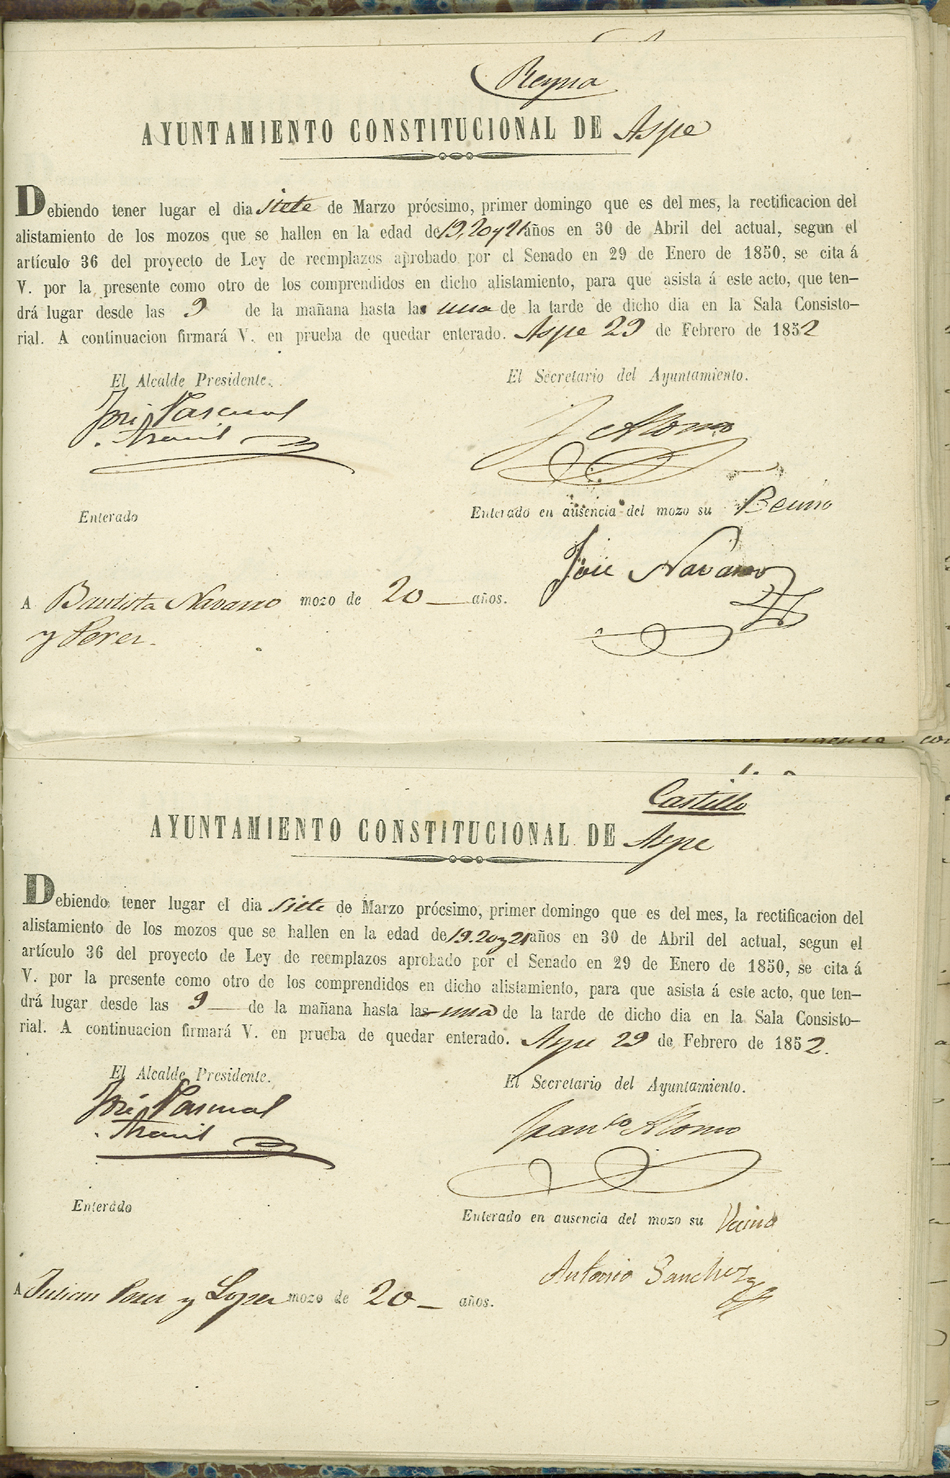 Reyna
AYUNTAMIENTO CONSTITUCIONAL DE Aspe
Debiendo tener lugar el dia siete de Marzo prócsimo, primer domingo que es del mes, la rectificacion del
alistamiento de los mozos que se hallen en la edad de 19, 20 y 21 años en 30 de Abril del actual, segun el
artículo 36 del proyecto de Ley de reemplazos aprobado por el Senado en 29 de Enero de 1850, se cita á
V. por la presente como otro de los comprendidos en dicho alistamiento, para que asista á este acto, que ten-
drá lugar desde las 9 de la mañana hasta las una de la tarde de dicho dia en la Sala Consisto-
rial. A continuacion firmará V. en prueba de quedar enterado. Aspe 29 de Febrero de 1852
El Alcalde Presidente.
El Secretario del Ayuntamiento.
José Pascual
Alonso
Enterado
Enterado en ausencia del mozo su
José Navarro
A Bautista Navarro mozo de 20 años.
y Perez.
Castillo
AYUNTAMIENTO CONSTITUCIONAL DE Aspe
Debiendo tener lugar el dia siete de Marzo prócsimo, primer domingo que es del mes, la rectificacion del
alistamiento de los mozos que se hallen en la edad de 19. 20 y 21 años en 30 de Abril del actual, segun el
artículo 36 del proyecto de Ley de reemplazos aprobado por el Senado en 29 de Enero de 1850, se cita á
V. por la presente como otro de los comprendidos en dicho alistamiento, para que asista á este acto, que ten-
drá lugar desde las 9 de la mañana hasta las una de la tarde de dicho dia en la Sala Consisto-
rial. A continuacion firmará V. en prueba de quedar enterado. Aspe 29 de Febrero de 1852.
El Alcalde Presidente.
El Secretario del Ayuntamiento.
José Pascual
Franco Alonso
Enterado
Enterado en ausencia del mozo su Vecino
Antonio Sanchez
A Julian y Lopez mozo de 20 años.